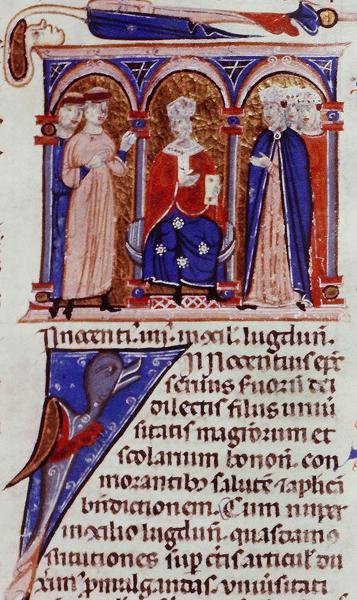 Innocenti. iiii. in ↄcil. lugdun̄.
Innocentius ep̄c
seruus seruorū dei
dilectis filijs uniu̾
sitatis magrorum et
scolarium bonon̄. com
morantib; salutē ⁊ aplicā
bn̄dictionem. Cum nuper
in ↄcilio lugdun̄. quasdam ↄ
stitutiones sup̄ c̄tis articul̓ du
xim̓ p̄mulgandas. uniu̾sitati